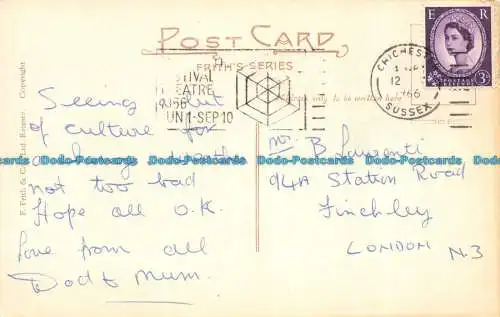 POST CARD
FRITH'S SERIES
E R
3D
CHICHEST
12
1966
SUSSEX
TIVAL
EATRE
1966
UN 1-SEP 10
only to be written here
Seeing a bit
of culture for
a change
not too bad
Hope all O.K.
Love from all
Dad & Mum.
Mr. B Laurenti
94A Station Road
Finchley
LONDON N.3
F. Frith & Co., Ltd., Reigate. Copyright
Dodo-Postcards Dodo-Postcards Dodo-Postcards Dodo-Postcards